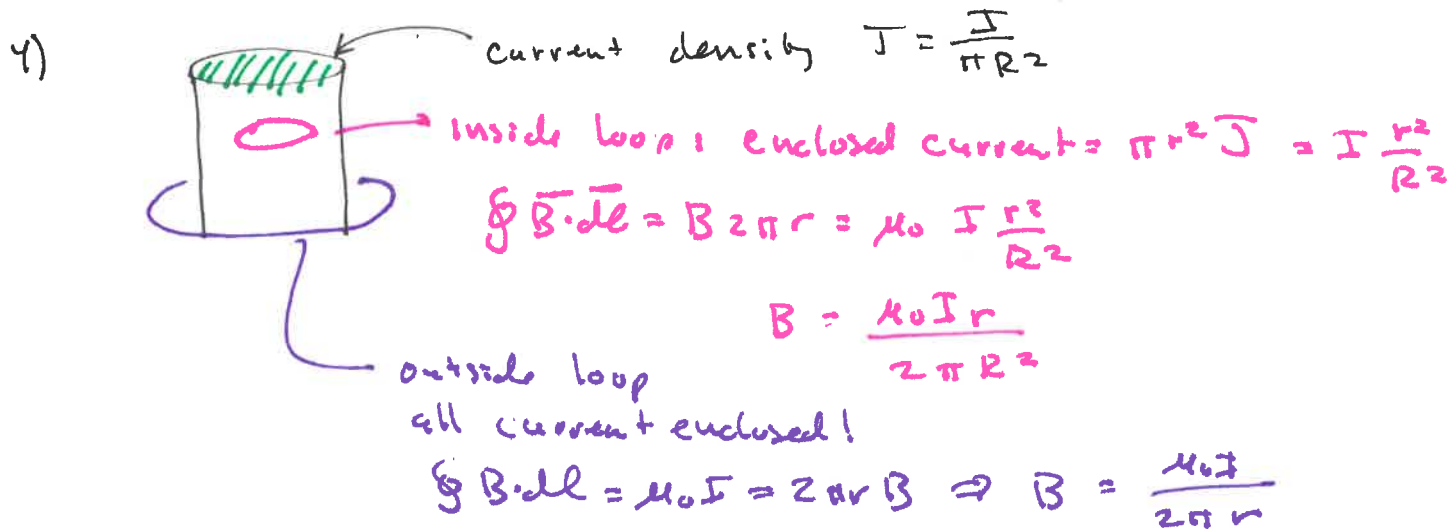 4) current density J = I/πR²
inside loop: enclosed current = πr² J = I r²/R²
∮ B̄·dl̄ = B 2πr = μ₀ I r²/R²
B = μ₀Ir/2πR²
outside loop
all current enclosed!
∮ B·dl = μ₀I = 2πrB ⇒ B = μ₀I/2πr